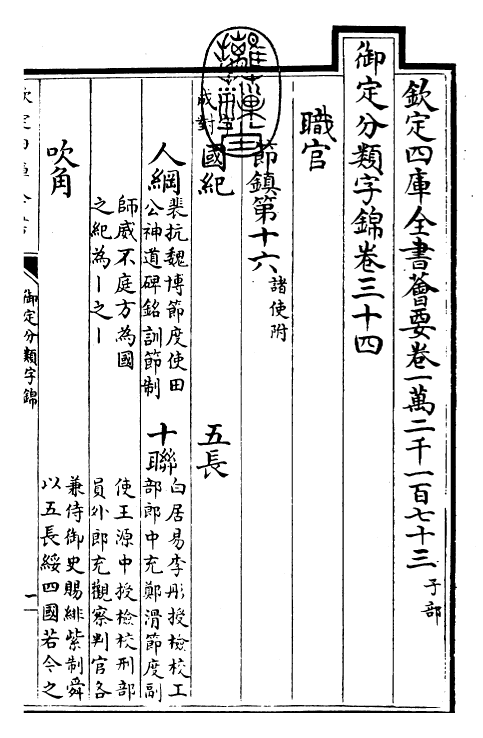 欽定四庫全書薈要卷一萬二千一百七十三 子部
御定分類字錦卷三十四
職官
節鎮第十六 諸使附
成對
國紀 五長
人綱 裴抗魏博節度使田
公神道碑銘訓節制
師威不庭方為國
之紀為丨之丨
十聯 白居易李彤授檢校工
部郎中充鄭滑節度副
使王源中授檢校刑部
員外郎充觀察判官各
兼侍御史賜緋紫制舜
以五長綏四國若令之
吹角
御定分類字錦
一